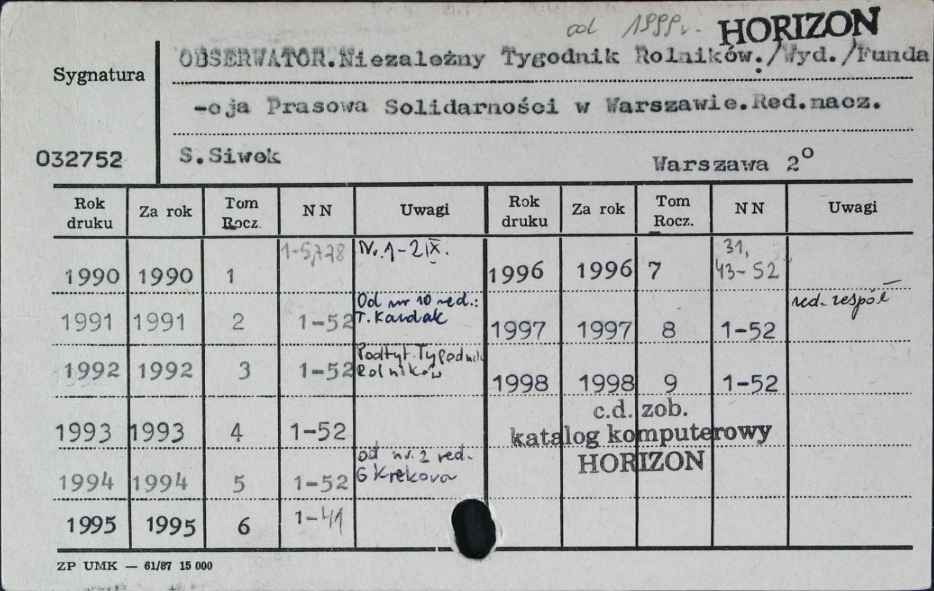 od 1999r. HORIZON
Sygnatura
OBSERWATOR.Niezależny Tygodnik Rolników./Wyd./Funda
-cja Prasowa Solidarności w Warszawie.Red.nacz.
032752 S.Siwek Warszawa 2°
Rok druku Za rok Tom Rocz. NN Uwagi Rok druku Za rok Tom Rocz. NN Uwagi
1990 1990 1 Nr. 1-2 IX. 1996 1996 7 31, 43-52
1991 1991 2 1-52 Od nr 10 red.: T. Kardak 1997 1997 8 1-52 red. zespół
1992 1992 3 1-52 Podtyt. Tygodnik Rolników 1998 1998 9 1-52
1993 1993 4 1-52
c.d. zob.
katalog komputerowy
HORIZON
1994 1994 5 1-52 od nr. 2 red. G Krekova
1995 1995 6 1-41
ZP UMK — 61/87 15 000